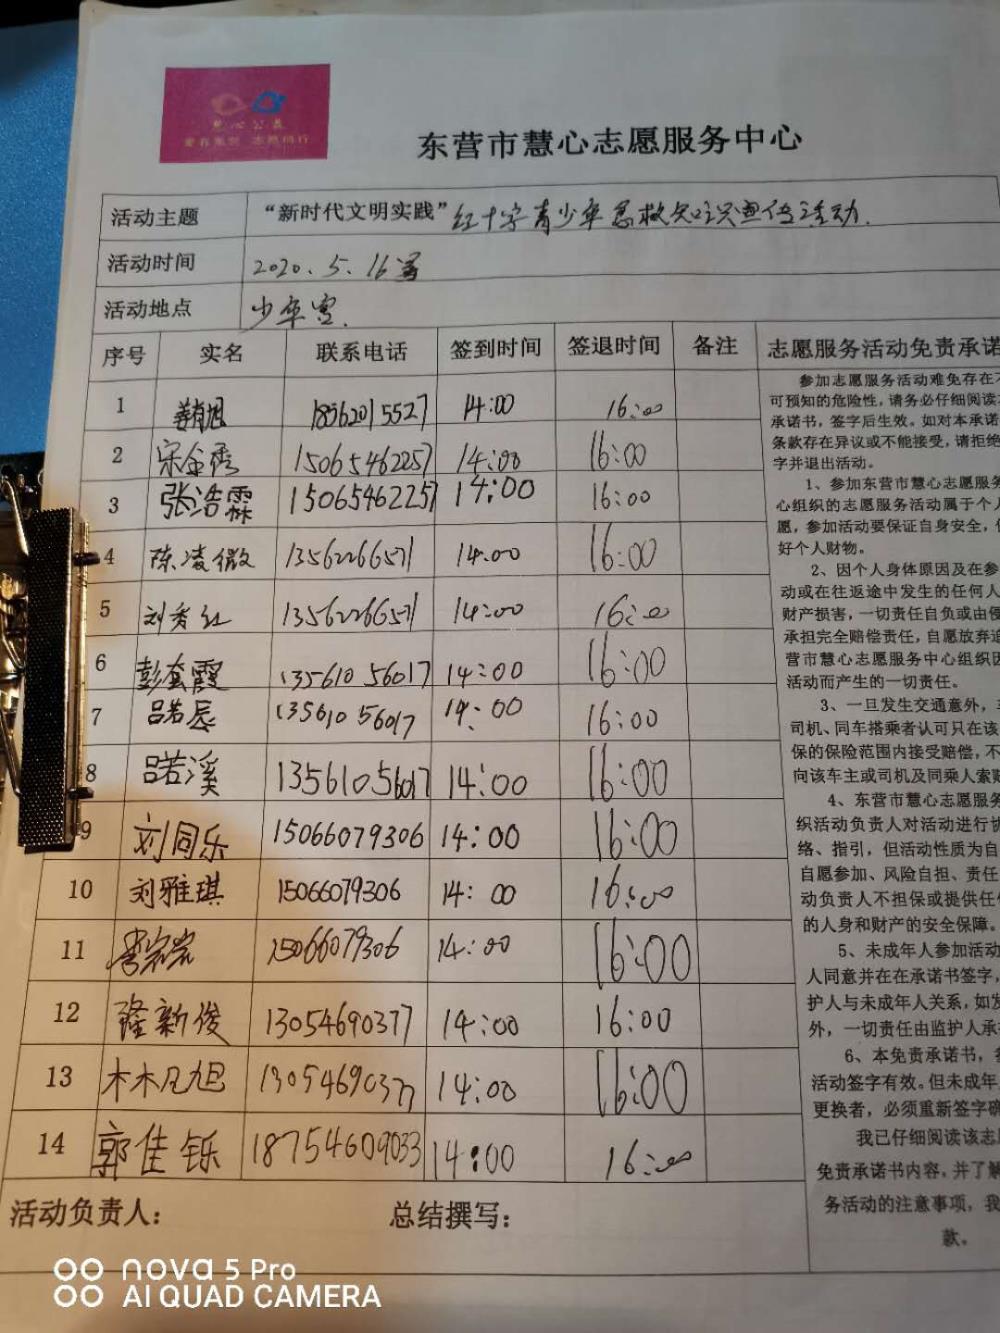 慧心公益
东营市慧心志愿服务中心
活动主题 “新时代文明实践”红十字青少年急救知识宣传活动.
活动时间 2020.5.16
活动地点 少年宫.
序号 实名 联系电话 签到时间 签退时间 备注 志愿服务活动免责承诺
1 18562015527 14:00 16:00
2 宋金秀 15065462257 14:00 16:00
3 张浩霖 15065462257 14:00 16:00
4 陈凌微 13562266571 14:00 16:00
5 刘秀红 13562266571 14:00 16:00
6 彭奎霞 13561056017 14:00 16:00
7 吕若辰 13561056017 14:00 16:00
8 吕若溪 13561056017 14:00 16:00
9 刘同乐 15066079306 14:00 16:00
10 刘雅琪 15066079306 14:00 16:00
11 15066079306 14:00 16:00
12 隆新俊 13054690377 14:00 16:00
13 林凡旭 13054690377 14:00 16:00
14 郭佳铄 18754609033 14:00 16:00
参加志愿服务活动难免存在不
可预知的危险性，请务必仔细阅读
承诺书，签字后生效。如对本承诺
条款存在异议或不能接受，请拒绝
字并退出活动。
1、参加东营市慧心志愿服务
心组织的志愿服务活动属于个人
愿，参加活动要保证自身安全，
好个人财物。
2、因个人身体原因及在参
动或在往返途中发生的任何人
财产损害，一切责任自负或由侵
承担完全赔偿责任，自愿放弃追
营市慧心志愿服务中心组织因
活动而产生的一切责任。
3、一旦发生交通意外，
司机、同车搭乘者认可只在该
保的保险范围内接受赔偿，不
向该车主或司机及同乘人索赔
4、东营市慧心志愿服务
织活动负责人对活动进行协
络、指引，但活动性质为自
自愿参加、风险自担、责任
动负责人不担保或提供任何
的人身和财产的安全保障。
5、未成年人参加活动
人同意并在在承诺书签字，
护人与未成年人关系，如发
外，一切责任由监护人承
6、本免责承诺书，
活动签字有效。但未成年
更换者，必须重新签字确
我已仔细阅读该志愿
免责承诺书内容，并了解
务活动的注意事项，我
款。
活动负责人： 总结撰写：
nova 5 Pro
AI QUAD CAMERA